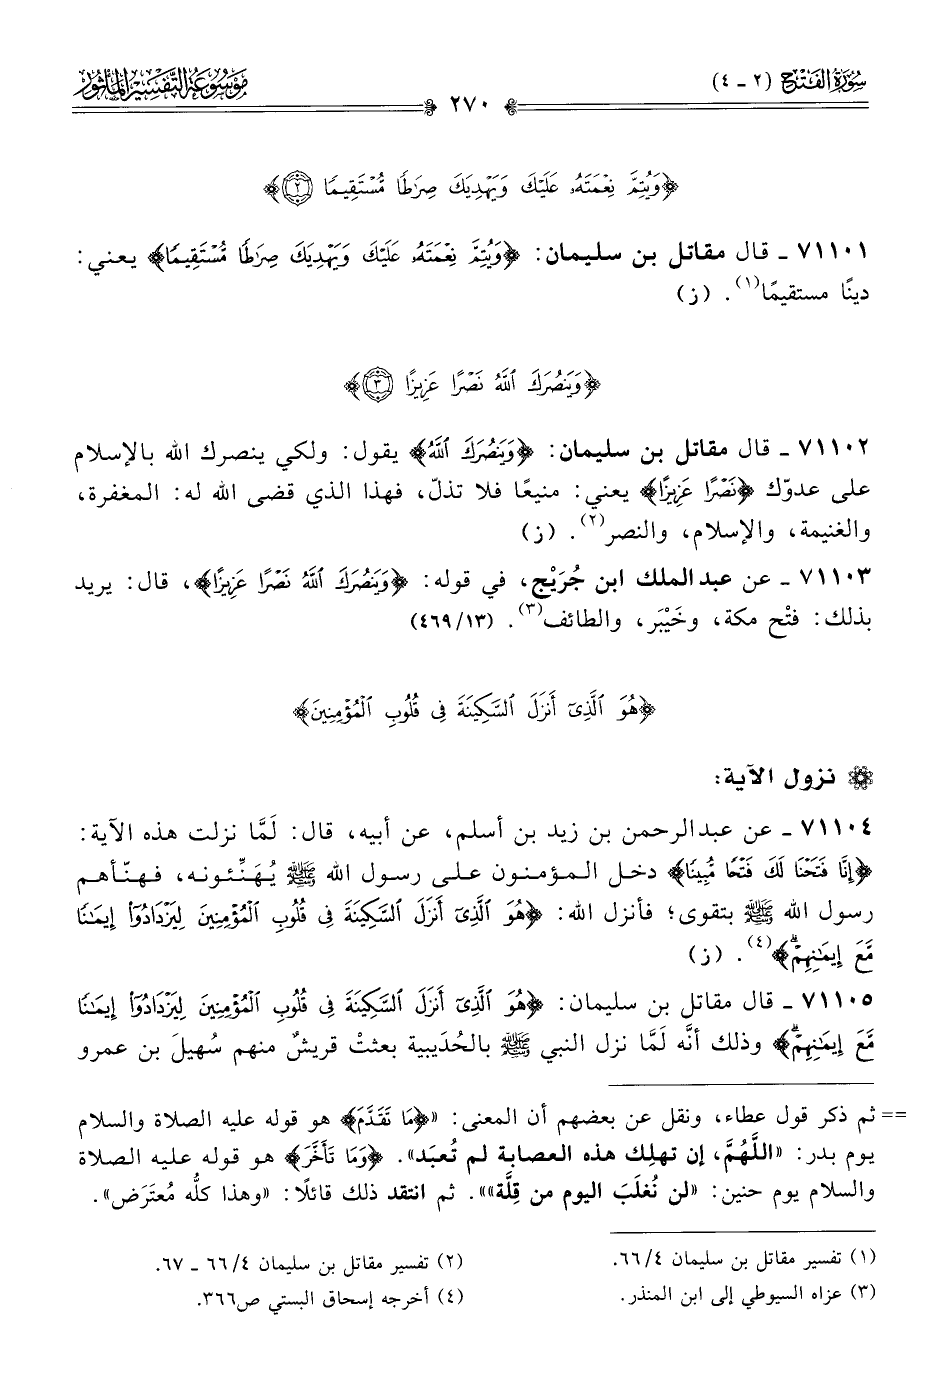 سُورَةُ الفَتْحِ (٢ - ٤)
٢٧٠
مَوْسُوعَةُ التَّفْسِيرِ المَأْثُور
﴿وَيُتِمَّ نِعْمَتَهُۥ عَلَيْكَ وَيَهْدِيَكَ صِرَٰطًا مُّسْتَقِيمًا ۝٢﴾
٧١١٠١ ـ قال مقاتل بن سليمان: ﴿وَيُتِمَّ نِعْمَتَهُۥ عَلَيْكَ وَيَهْدِيَكَ صِرَٰطًا مُّسْتَقِيمًا﴾ يعني:
دينًا مستقيمًا(١). (ز)
﴿وَيَنصُرَكَ ٱللَّهُ نَصْرًا عَزِيزًا ۝٣﴾
٧١١٠٢ ـ قال مقاتل بن سليمان: ﴿وَيَنصُرَكَ ٱللَّهُ﴾ يقول: ولكي ينصرك الله بالإسلام
على عدوّك ﴿نَصْرًا عَزِيزًا﴾ يعني: منيعًا فلا تذلّ، فهذا الذي قضى الله له: المغفرة،
والغنيمة، والإسلام، والنصر(٢). (ز)
٧١١٠٣ ـ عن عبدالملك ابن جُرَيْج، في قوله: ﴿وَيَنصُرَكَ ٱللَّهُ نَصْرًا عَزِيزًا﴾، قال: يريد
بذلك: فتْح مكة، وخَيْبَر، والطائف(٣). (٤٦٩/١٣)
﴿هُوَ ٱلَّذِىٓ أَنزَلَ ٱلسَّكِينَةَ فِى قُلُوبِ ٱلْمُؤْمِنِينَ﴾
نزول الآية:
٧١١٠٤ ـ عن عبدالرحمن بن زيد بن أسلم، عن أبيه، قال: لَمَّا نزلت هذه الآية:
﴿إِنَّا فَتَحْنَا لَكَ فَتْحًا مُّبِينًا﴾ دخل المؤمنون على رسول الله ﷺ يُهَنِّئونه، فهنَّأهم
رسول الله ﷺ بتقوى؛ فأنزل الله: ﴿هُوَ ٱلَّذِىٓ أَنزَلَ ٱلسَّكِينَةَ فِى قُلُوبِ ٱلْمُؤْمِنِينَ لِيَزْدَادُوٓا۟ إِيمَٰنًا
مَّعَ إِيمَٰنِهِمْ ۗ﴾(٤). (ز)
٧١١٠٥ ـ قال مقاتل بن سليمان: ﴿هُوَ ٱلَّذِىٓ أَنزَلَ ٱلسَّكِينَةَ فِى قُلُوبِ ٱلْمُؤْمِنِينَ لِيَزْدَادُوٓا۟ إِيمَٰنًا
مَّعَ إِيمَٰنِهِمْ ۗ﴾ وذلك أنَّه لَمَّا نزل النبي ﷺ بالحُدَيبية بعثتْ قريشٌ منهم سُهيلَ بن عمرو
== ثم ذكر قول عطاء، ونقل عن بعضهم أن المعنى: «﴿مَا تَقَدَّمَ﴾ هو قوله عليه الصلاة والسلام
يوم بدر: «اللَّهُمَّ، إن تهلِك هذه العصابة لم تُعبَد». ﴿وَمَا تَأَخَّرَ﴾ هو قوله عليه الصلاة
والسلام يوم حنين: «لن نُغلَبَ اليوم من قِلَّة»». ثم انتقد ذلك قائلًا: «وهذا كلُّه مُعتَرَض».
(١) تفسير مقاتل بن سليمان ٦٦/٤.
(٢) تفسير مقاتل بن سليمان ٦٦/٤ ـ ٦٧.
(٣) عزاه السيوطي إلى ابن المنذر.
(٤) أخرجه إسحاق البستي ص٣٦٦.